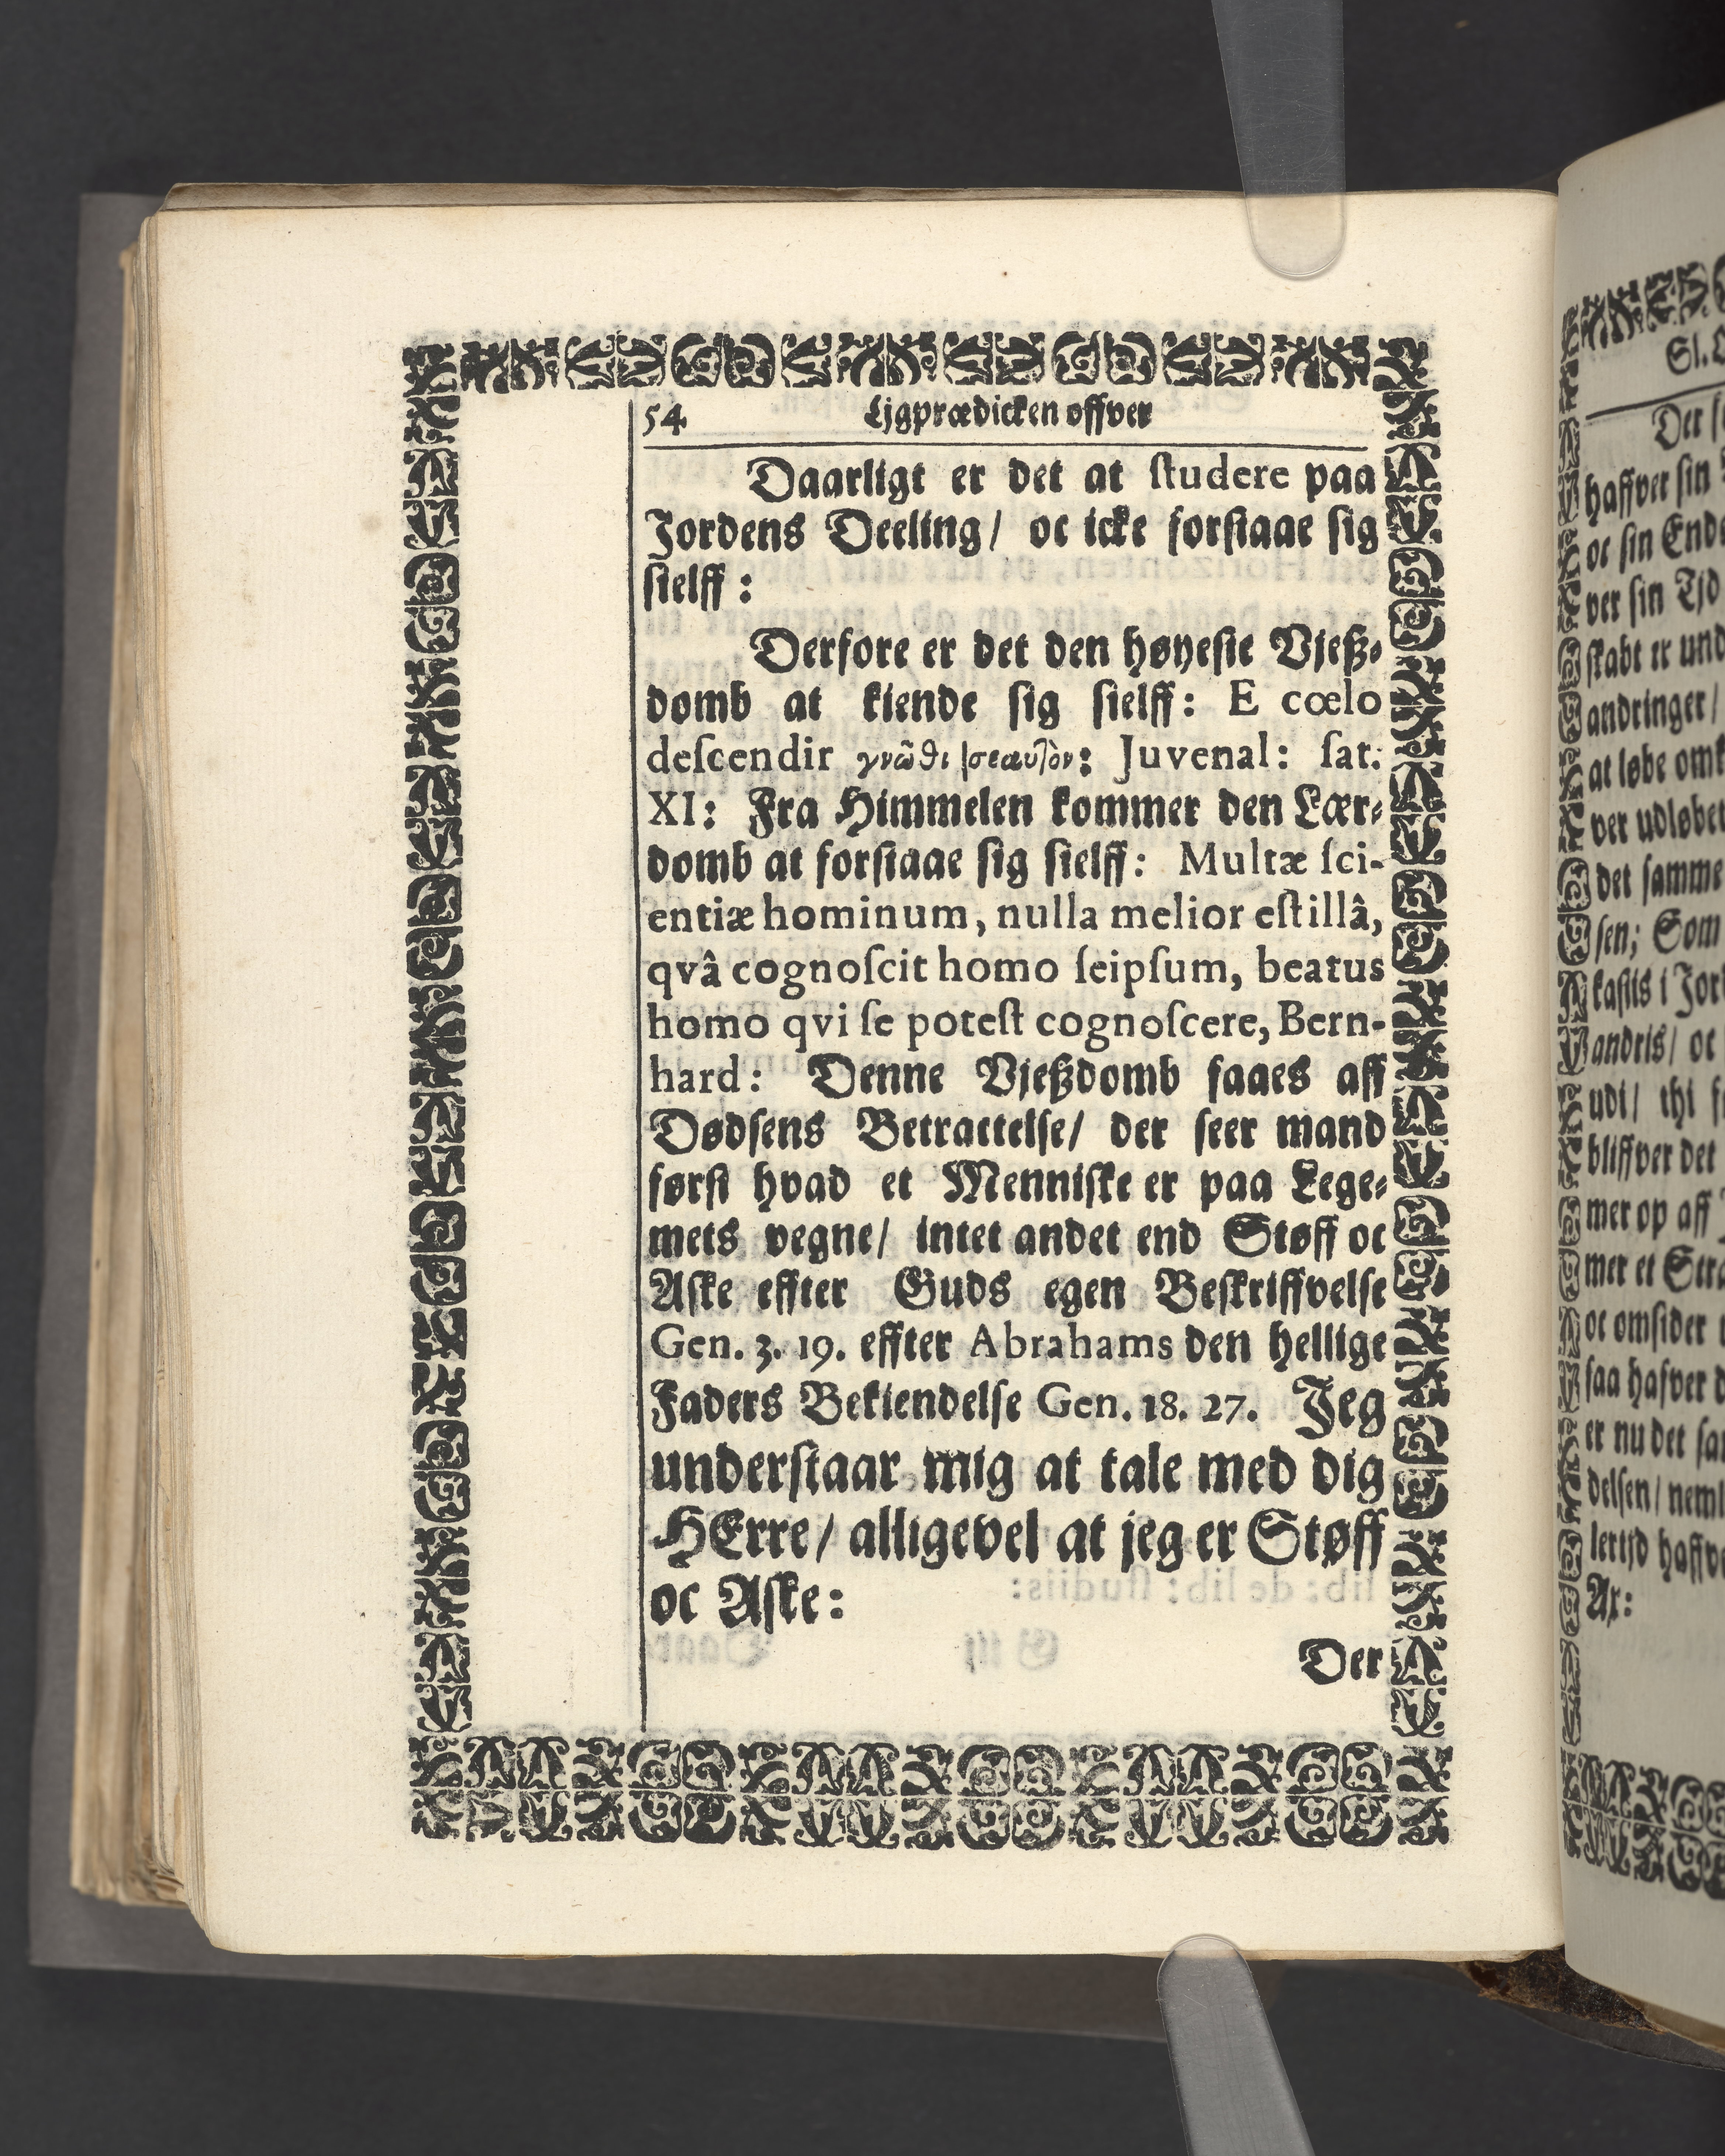 54 Ljgprædicken offver
Daarligt er det at ſtudere paa
Jordens Deeling/ oc icke forſtaae ſig
ſielff:
Derfore er det den høyeſte Vjeßz-
domb at kiende ſig ſielff: E cœlo
deſcendir γνῶϑι σεαυτὸν: Juvenal: ſat:
XI: Fra Himmelen kommer den Lær-
domb at forſtaae ſig ſielff: Multæ ſci-
entiæ hominum, nulla melior eſt illâ,
qvâ cognoſcit homo ſeipſum, beatus
homo qvi ſe poteſt cognoſcere, Bern-
hard: Denne Vjeßdomb faaes aff
Dødſens Betractelſe/ der ſeer mand
førſt hvad et Menniſke er paa Lege-
mets vegne/ intet andet end Støff oc
Aſke effter Guds egen Beſkriffvelſe
Gen. 3. 19. effter Abrahams den hellige
Faders Bekiendelſe Gen. 18. 27. Jeg
underſtaar mig at tale med dig
HErre/ alligevel at jeg er Støff
oc Aſke:
Der
Sl.
Der
haffver ſin
oc ſin Ende
ver ſin Tjd
ſkabt er und
andringer/
at løbe omk
ver udløbet
det ſamme
ſen; Som
kaſtis i Jor
andris/ oc
udi/ thi
bliffver det
mer op aff
mer et Stra
oc omſider
ſaa hafver
er nu det
delſen/ neml
lertjd haffve
Ax: